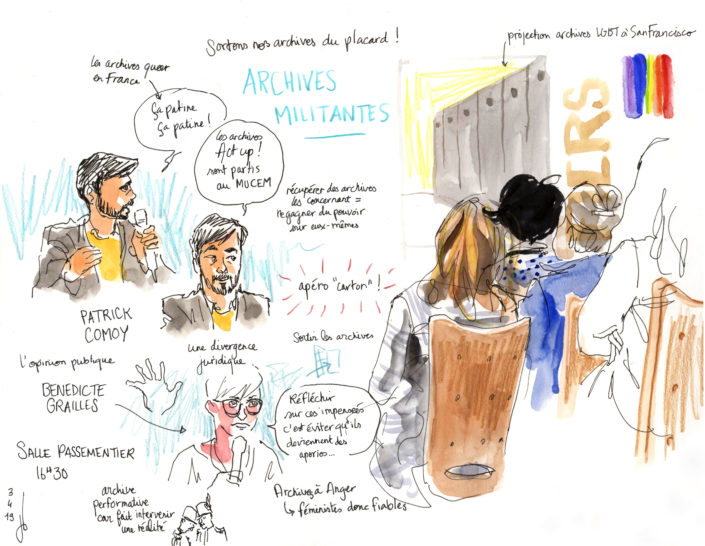 Sortons nos archives du placard !
projection archives LGBT à San Francisco
les archives queer
en France
ARCHIVES
MILITANTES
Ça patine
Ça patine !
les archives
Act up !
sont partis
au MUCEM
récupérer des archives
les concernant =
regagner du pouvoir
sur eux-mêmes
IRS
apéro "carton" !
PATRICK
COMOY
une divergence
juridique
Sortir les archives
l'opinion publique
BENEDICTE
GRAILLES
Réfléchir
sur ces impensées
c'est éviter qu'ils
deviennent des
apories...
SALLE PASSEMENTIER
16H30
Archives à Anger
↳ féministes donc fiables
archive
performative
car fait intervenir
une réalité
3
4
19